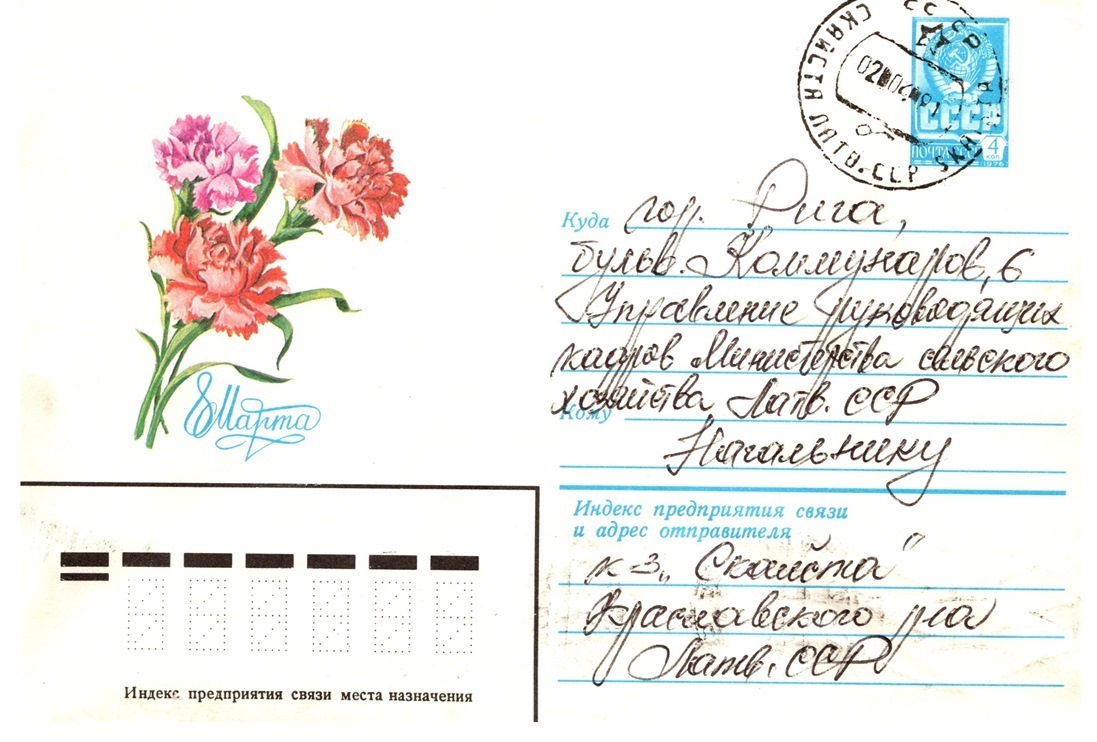 8 Марта
СКАЙСТА ЛАТВ. ССР
СССР
ПОЧТА
4
КОП
1976
Куда гор. Рига,
бульв. Коммунаров, 6
Управление руководящих
кадров Министерства сельского
хозяйства Латв. ССР
Кому
Начальнику
Индекс предприятия связи
и адрес отправителя
к-з „Скайста"
Краславского р-на
Латв. ССР
Индекс предприятия связи места назначения